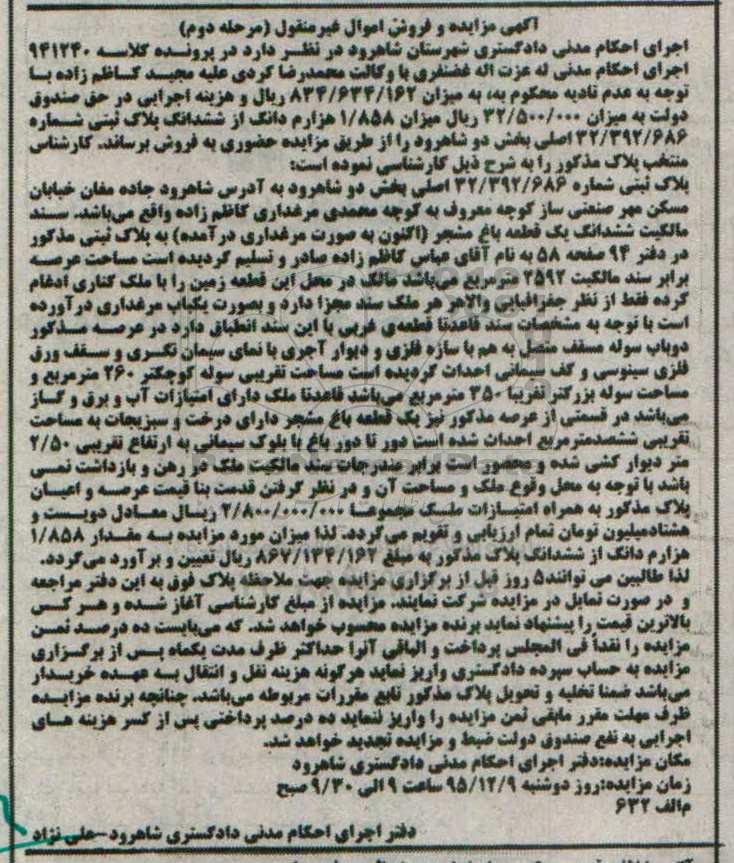 آگهی مزایده و فروش اموال غیرمنقول (مرحله دوم)
اجرای احکام مدنی دادگستری شهرستان شاهرود در نظر دارد در پرونده کلاسه ۹۴۱۲۴۰
اجرای احکام مدنی له عزت اله غضنفری با وکالت محمدرضا کردی علیه مجید کاظم زاده با
توجه به عدم تادیه محکوم به، به میزان ۸۳۴/۶۳۴/۱۶۲ ریال و هزینه اجرایی در حق صندوق
دولت به میزان ۳۲/۵۰۰/۰۰۰ ریال میزان ۱/۸۵۸ هزارم دانگ از ششدانگ پلاک ثبتی شماره
۳۲/۳۹۲/۶۸۶ اصلی بخش دو شاهرود را از طریق مزایده حضوری به فروش برساند. کارشناس
منتخب پلاک مذکور را به شرح ذیل کارشناسی نموده است:
پلاک ثبتی شماره ۳۲/۳۹۲/۶۸۶ اصلی بخش دو شاهرود به آدرس شاهرود جاده مغان خیابان
مسکن مهر صنعتی ساز کوچه معروف به کوچه محمدی مرغداری کاظم زاده واقع می‌باشد. سند
مالکیت ششدانگ یک قطعه باغ مشجر (اکنون به صورت مرغداری درآمده) به پلاک ثبتی مذکور
در دفتر ۹۴ صفحه ۵۸ به نام آقای عباس کاظم زاده صادر و تسلیم گردیده است مساحت عرصه
برابر سند مالکیت ۲۵۹۲ مترمربع می‌باشد مالک در محل این قطعه زمین را با ملک کناری ادغام
کرده فقط از نظر جغرافیایی والاهر هر ملک سند مجزا دارد و بصورت یکباب مرغداری درآورده
است با توجه به مشخصات سند قاعدتا قطعه‌ی غربی با این سند انطباق دارد در عرصه مذکور
دوباب سوله مسقف متصل به هم با سازه فلزی و دیوار آجری با نمای سیمان تگری و سقف ورق
فلزی سینوسی و کف سیمانی احداث گردیده است مساحت تقریبی سوله کوچکتر ۲۶۰ مترمربع و
مساحت سوله بزرگتر تقریبا ۳۵۰ مترمربع می‌باشد قاعدتا ملک دارای امتیازات آب و برق و گاز
می‌باشد در قسمتی از عرصه مذکور نیز یک قطعه باغ مشجر دارای درخت و سبزیجات به مساحت
تقریبی ششصدمترمربع احداث شده است دور تا دور باغ با بلوک سیمانی به ارتفاع تقریبی ۲/۵۰
متر دیوار کشی شده و محصور است برابر مندرجات سند مالکیت ملک در رهن و بازداشت نمی
باشد با توجه به محل وقوع ملک و مساحت آن و در نظر گرفتن قدمت بنا قیمت عرصه و اعیان
پلاک مذکور به همراه امتیازات ملک مجموعا ۲/۸۰۰/۰۰۰/۰۰۰ ریال معادل دویست و
هشتادمیلیون تومان تمام ارزیابی و تقویم می‌گردد. لذا میزان مورد مزایده به مقدار ۱/۸۵۸
هزارم دانگ از ششدانگ پلاک مذکور به مبلغ ۸۶۷/۱۳۴/۱۶۲ ریال تعیین و برآورد می‌گردد.
لذا طالبین می توانند۵ روز قبل از برگزاری مزایده جهت ملاحظه پلاک فوق به این دفتر مراجعه
و در صورت تمایل در مزایده شرکت نمایند. مزایده از مبلغ کارشناسی آغاز شده و هر کس
بالاترین قیمت را پیشنهاد نماید برنده مزایده محسوب خواهد شد. که می‌بایست ده درصد ثمن
مزایده را نقداً فی المجلس پرداخت و الباقی آنرا حداکثر ظرف مدت یکماه پس از برگزاری
مزایده به حساب سپرده دادگستری واریز نماید هرگونه هزینه نقل و انتقال به عهده خریدار
می‌باشد ضمنا تخلیه و تحویل پلاک مذکور تابع مقررات مربوطه می‌باشد. چنانچه برنده مزایده
ظرف مهلت مقرر مابقی ثمن مزایده را واریز ننماید ده درصد پرداختی پس از کسر هزینه های
اجرایی به نفع صندوق دولت ضبط و مزایده تجدید خواهد شد.
مکان مزایده:دفتر اجرای احکام مدنی دادگستری شاهرود
زمان مزایده:روز دوشنبه ۹۵/۱۲/۹ ساعت ۹ الی ۹/۳۰ صبح
م/الف ۶۳۲
دفتر اجرای احکام مدنی دادگستری شاهرود-علی نژاد